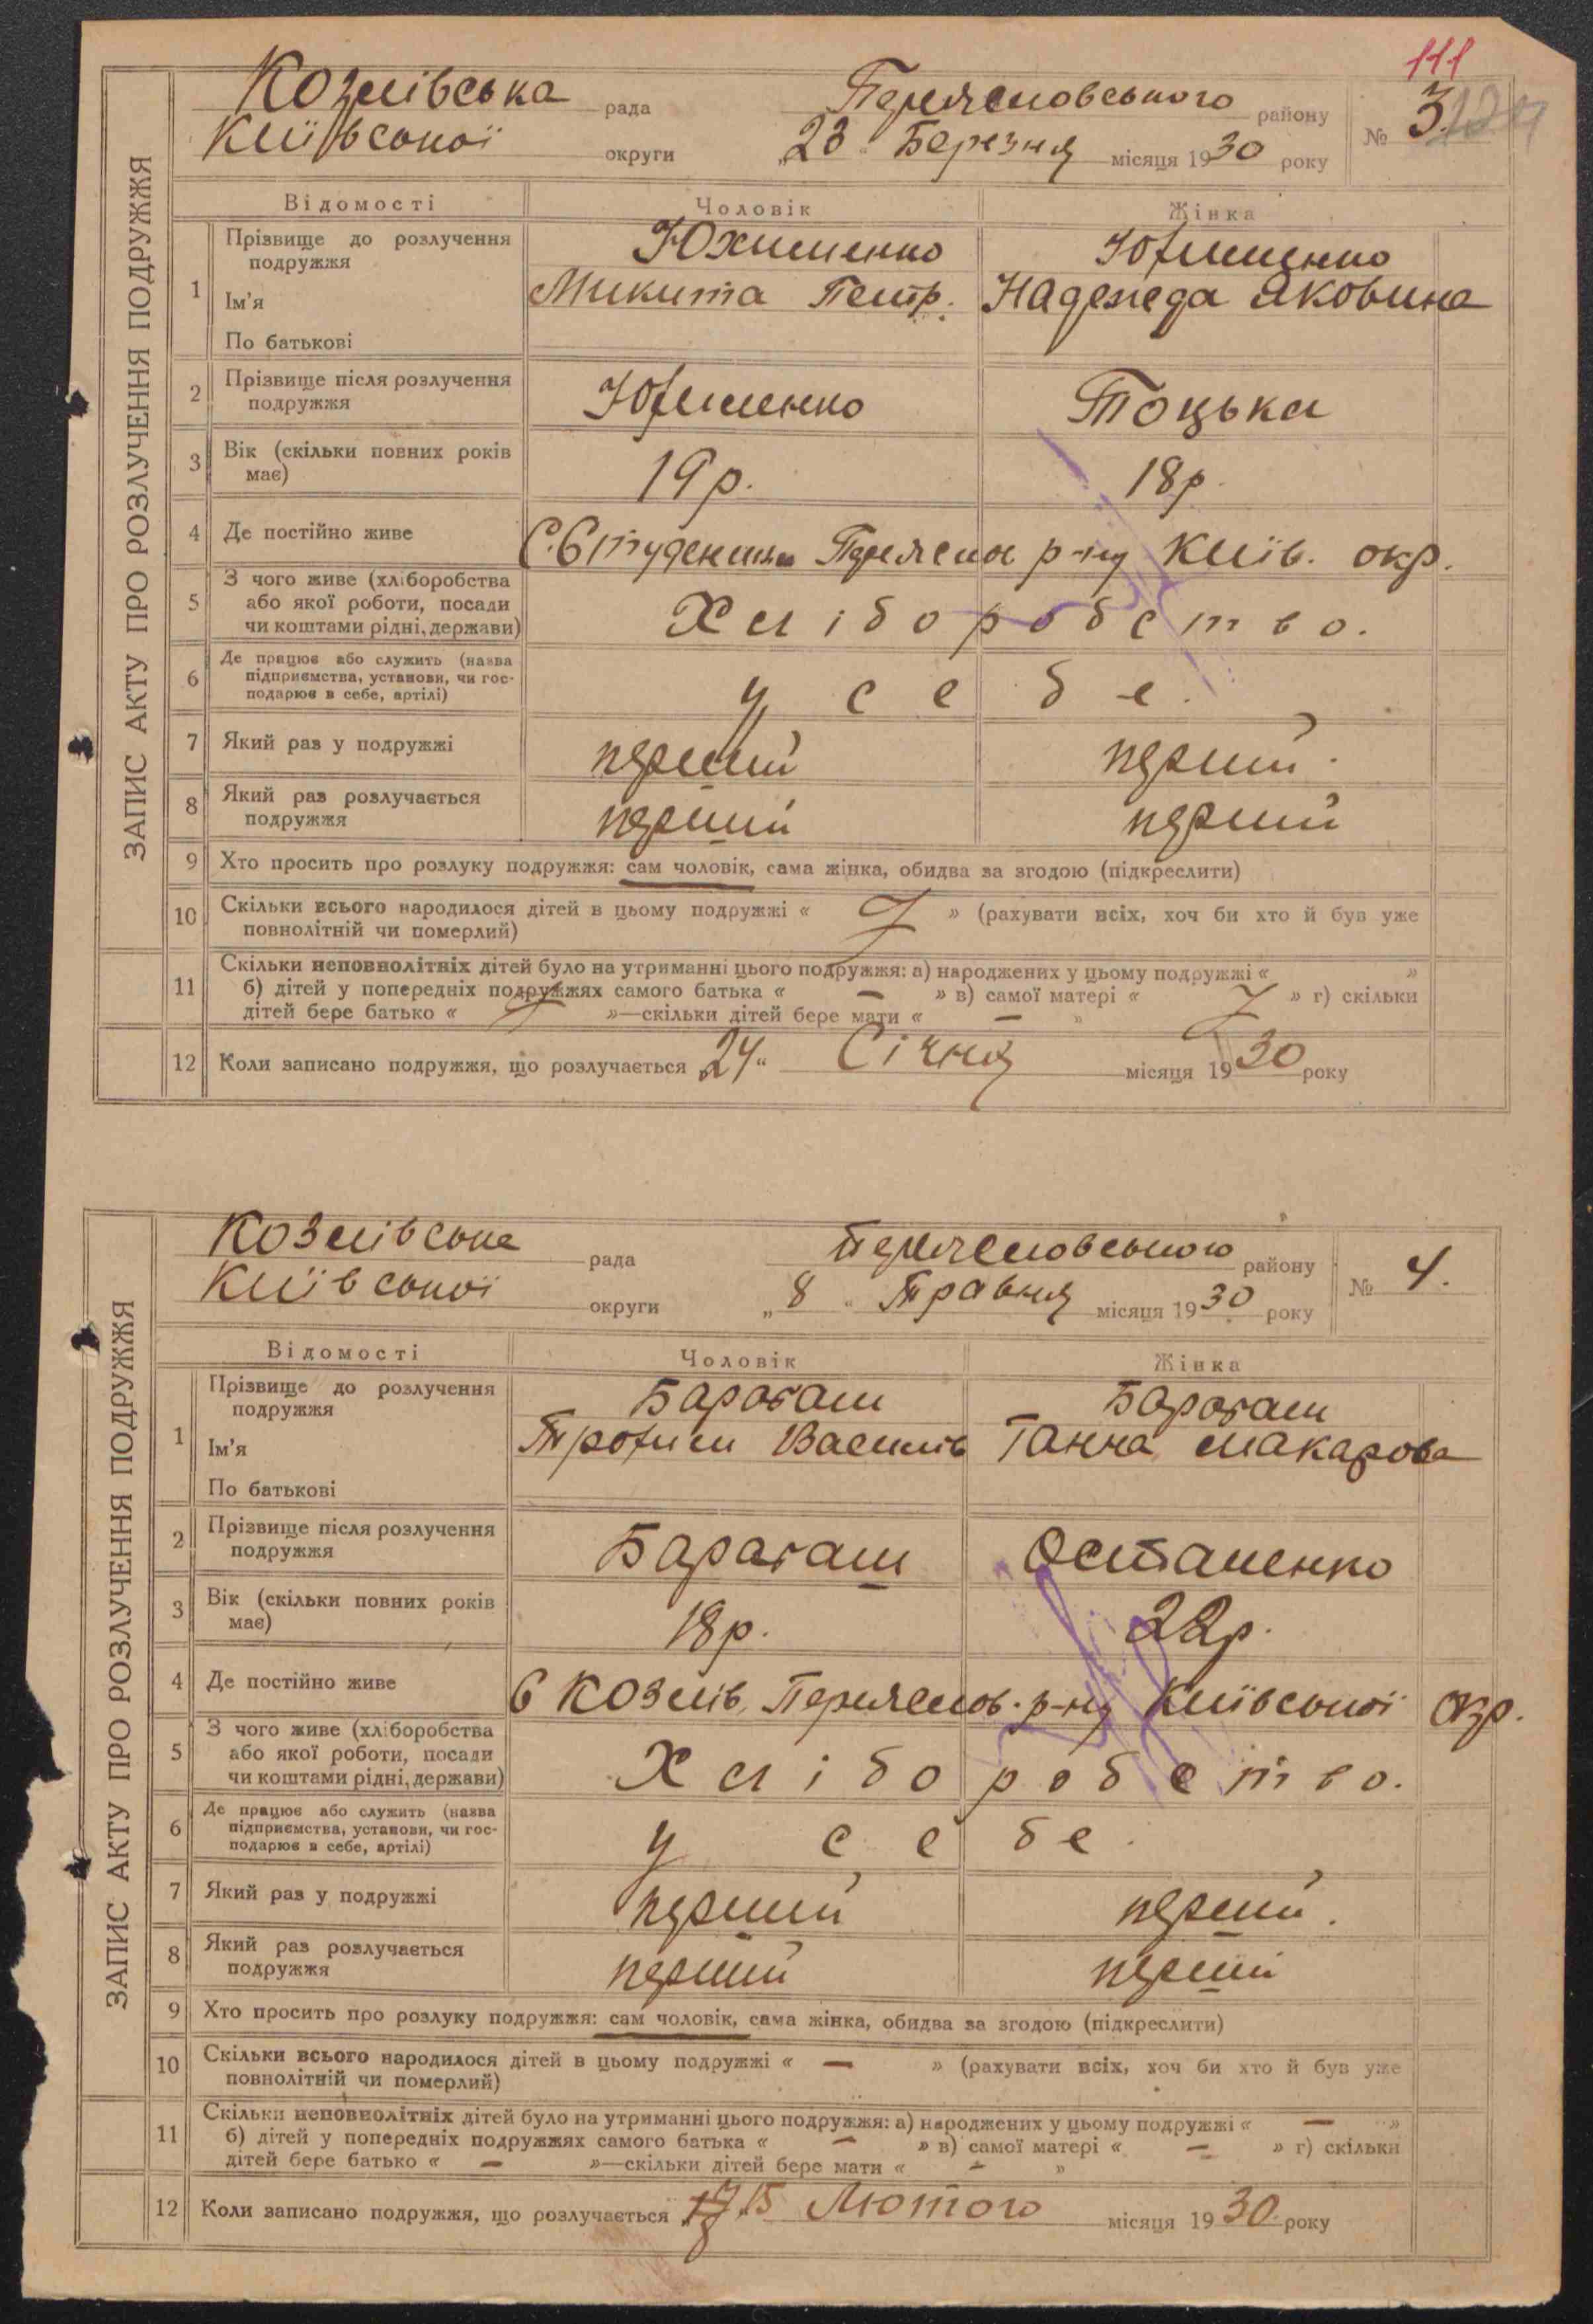 111
Козлівська рада Переяславського району № 3
Київської округи „23“ Березня місяця 1930 року
ЗАПИС АКТУ ПРО РОЗЛУЧЕННЯ ПОДРУЖЖЯ
Відомості Чоловік Жінка
1 Прізвище до розлучення подружжя Юхименко Юхименко
Ім'я Микита Петр. Надежда Яковына
По батькові
2 Прізвище після розлучення подружжя Юхименко Тоцька
3 Вік (скільки повних років має) 19 р. 18 р.
4 Де постійно живе р-ну Київ. окр.
5 З чого живе (хліборобства або якої роботи, посади чи коштами рідні, держави) Хліборобство.
6 Де працює або служить (назва підприємства, установи, чи господарює в себе, артілі) у себе.
7 Який раз у подружжі перший перший.
8 Який раз розлучається подружжя перший перший
9 Хто просить про розлуку подружжя: сам чоловік, сама жінка, обидва за згодою (підкреслити)
10 Скільки всього народилося дітей в цьому подружжі « » (рахувати всіх, хоч би хто й був уже
повнолітній чи померлий)
11 Скільки неповнолітніх дітей було на утриманні цього подружжя: а) народжених у цьому подружжі « »
б) дітей у попередніх подружжях самого батька « — » в) самої матері « » г) скільки
дітей бере батько « »—скільки дітей бере мати « — »
12 Коли записано подружжя, що розлучається „24“ Січня місяця 1930 року
Козлівська рада Переяславського району № 4.
Київської округи „8“ Травня місяця 1930 року
ЗАПИС АКТУ ПРО РОЗЛУЧЕННЯ ПОДРУЖЖЯ
Відомості Чоловік Жінка
1 Прізвище до розлучення подружжя Барабаш Барабаш
Ім'я Трохим Василів Ганна Макарова
По батькові
2 Прізвище після розлучення подружжя Барабаш Остапенко
3 Вік (скільки повних років має) 18 р. 22 р.
4 Де постійно живе С Козлів, Переяслов. р-ну Київської окр.
5 З чого живе (хліборобства або якої роботи, посади чи коштами рідні, держави) Хліборобство.
6 Де працює або служить (назва підприємства, установи, чи господарює в себе, артілі) у себе.
7 Який раз у подружжі перший перший.
8 Який раз розлучається подружжя перший перший
9 Хто просить про розлуку подружжя: сам чоловік, сама жінка, обидва за згодою (підкреслити)
10 Скільки всього народилося дітей в цьому подружжі « — » (рахувати всіх, хоч би хто й був уже
повнолітній чи померлий)
11 Скільки неповнолітніх дітей було на утриманні цього подружжя: а) народжених у цьому подружжі « — »
б) дітей у попередніх подружжях самого батька « — » в) самої матері « — » г) скільки
дітей бере батько « — »—скільки дітей бере мати « - »
12 Коли записано подружжя, що розлучається 15 Лютого місяця 1930 року